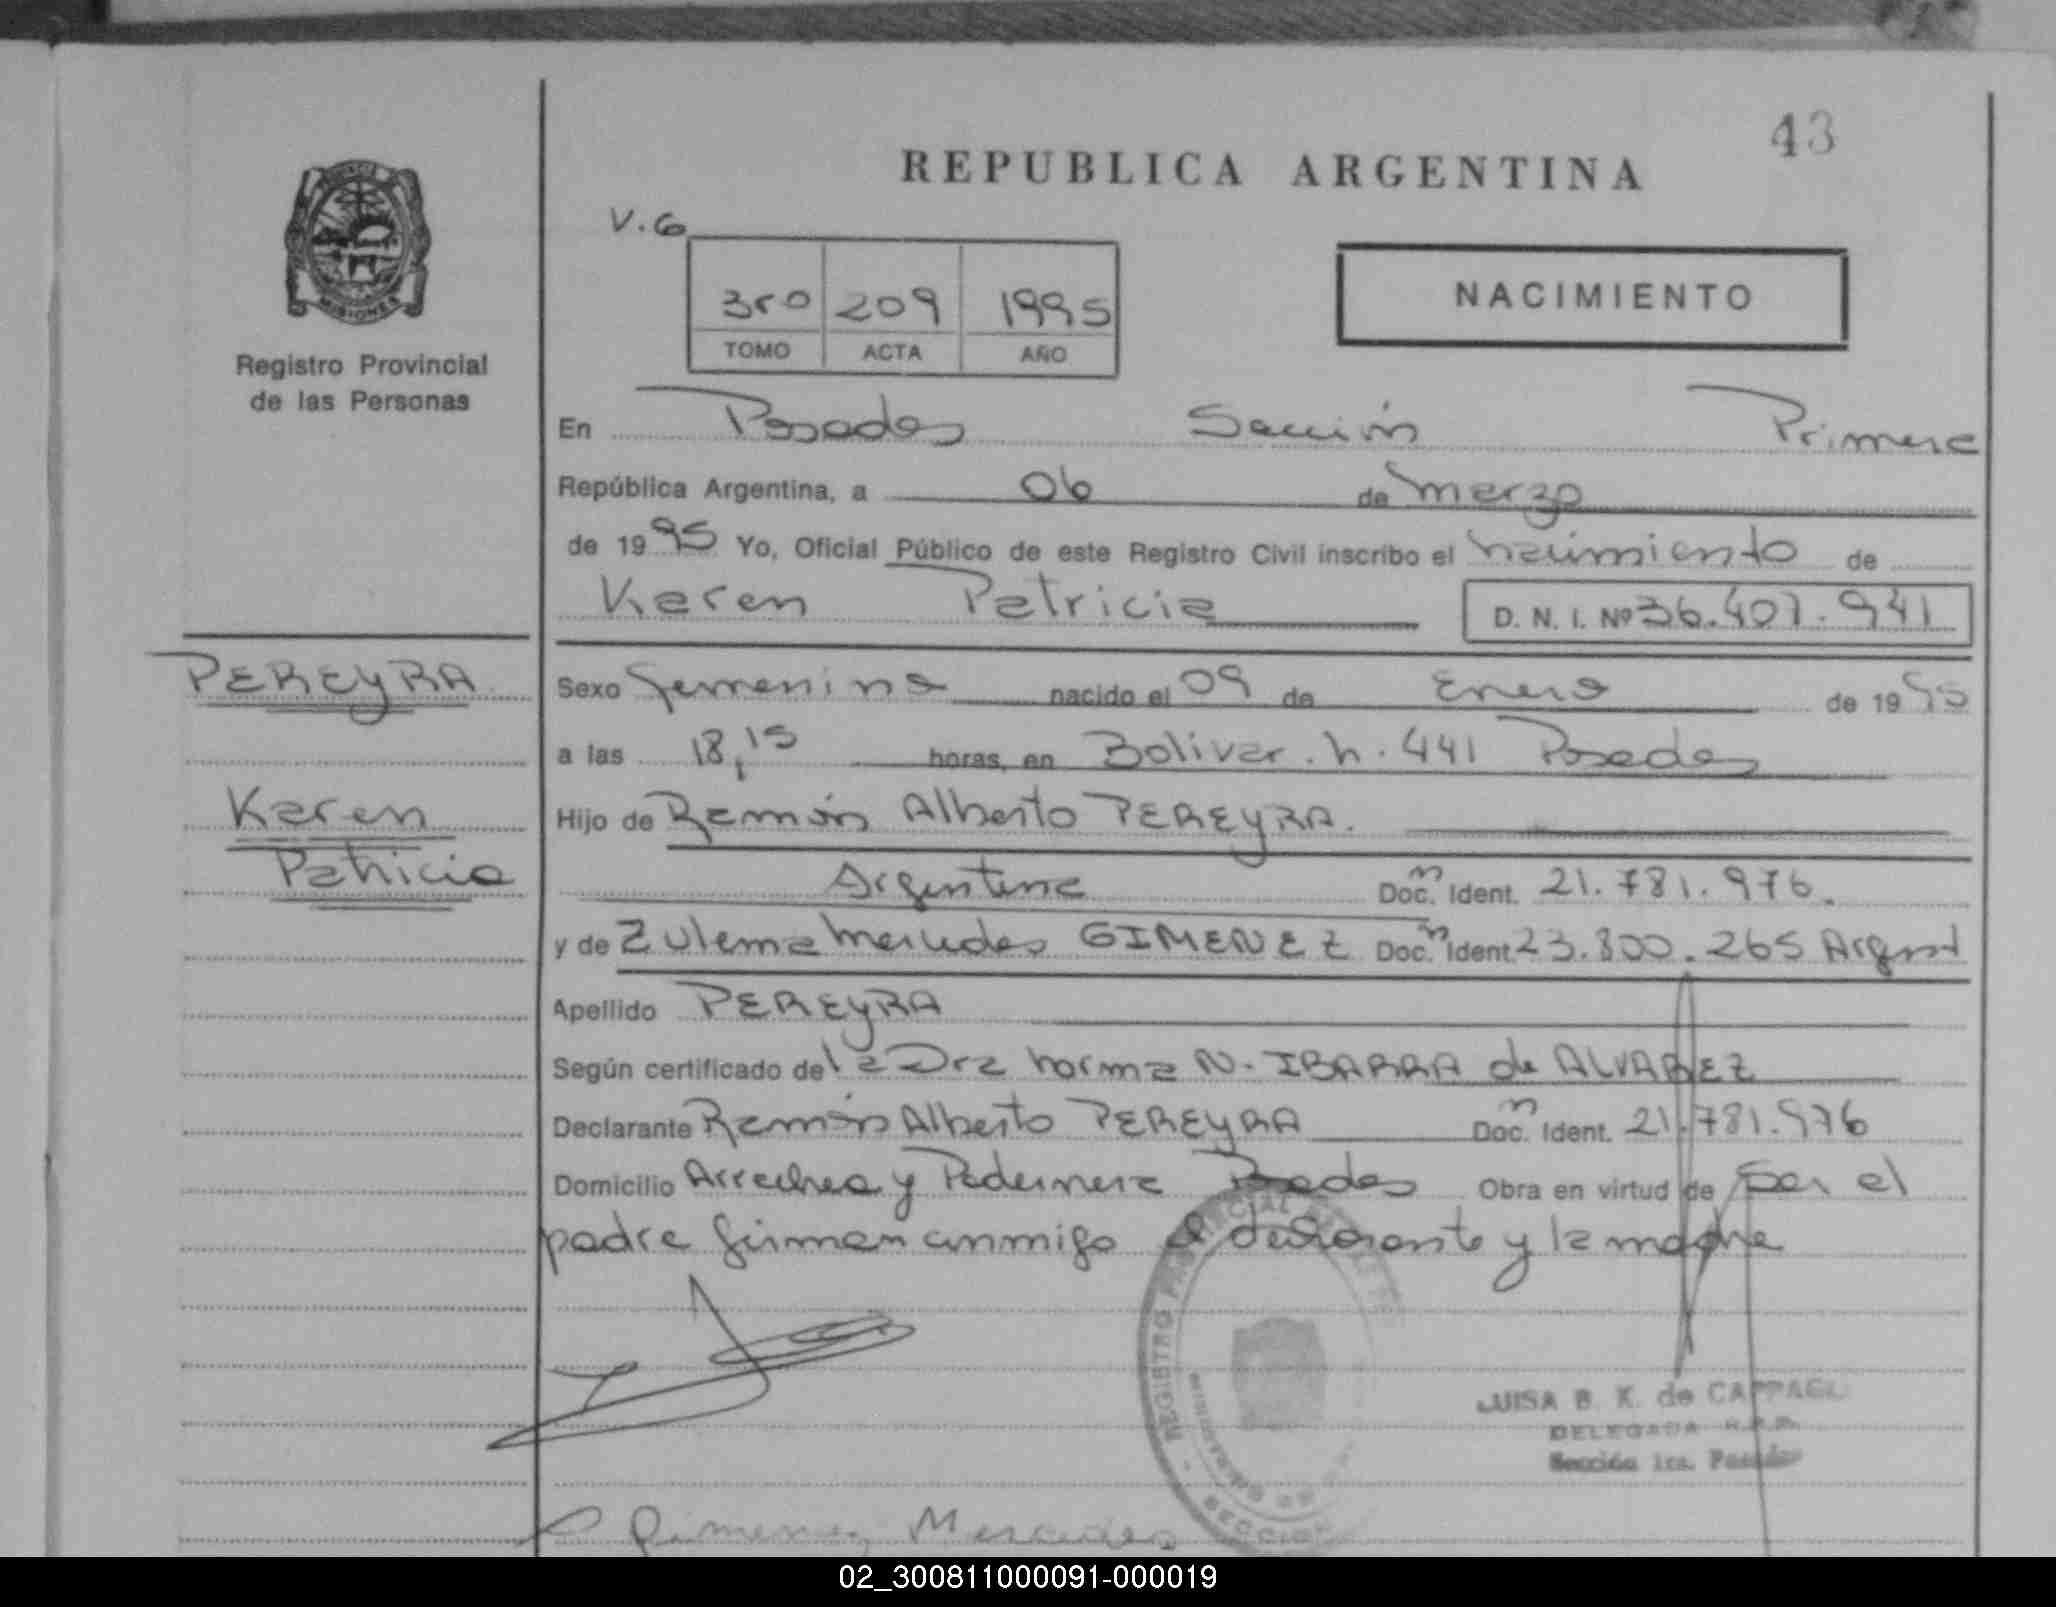 43
REPUBLICA ARGENTINA
V.G
3ro 209 1995
TOMO ACTA AÑO
NACIMIENTO
MISIONES
Registro Provincial
de las Personas
En Posadas Sección Primera
República Argentina, a 06 de marzo
de 1995 Yo, Oficial Público de este Registro Civil inscribo el nacimiento de
Karen Patricia D. N. I. Nº 36.407.941
PEREYRA
Sexo femenino nacido el 09 de Enero de 1995
a las 18,15 horas, en Bolivar. n. 441 Posadas
Karen
Hijo de Ramón Alberto PEREYRA.
Patricia
Argentina Doc. n Ident. 21.781.976.
y de Zulema Mercedes GIMENEZ Doc. n Ident. 23.800.265 Argent
Apellido PEREYRA
Según certificado de la Dra Norma N. IBARRA de ALVAREZ
Declarante Ramón Alberto PEREYRA Doc. n Ident. 21.781.976
Domicilio Arrechea y Pedernera Posadas Obra en virtud de ser el
padre firman conmigo el declarante y la madre
REGISTRO PROVINCIAL
SECCION
LUISA B. K. de CAPPAEL
DELEGADA R.P.P.
Sección 1ra. Posadas
Gimenez Mercedes
02_300811000091-000019